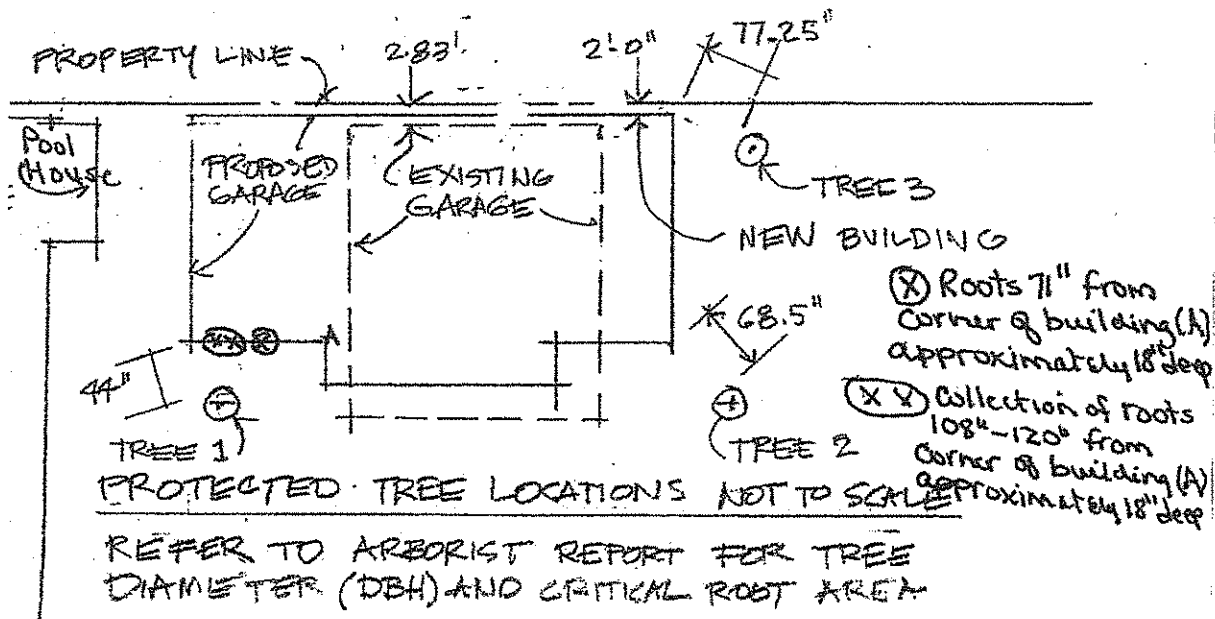 PROPERTY LINE
2.83'
2'-0"
77.25"
Pool
House
PROPOSED
GARAGE
EXISTING
GARAGE
TREE 3
NEW BUILDING
68.5"
(X) Roots 71" from
Corner of building (A)
approximately 18" deep
(X X) Collection of roots
108"-120" from
Corner of building (A)
approximately 18" deep
A
XX
X
44"
TREE 1
TREE 2
PROTECTED TREE LOCATIONS NOT TO SCALE
REFER TO ARBORIST REPORT FOR TREE
DIAMETER (DBH) AND CRITICAL ROOT AREA